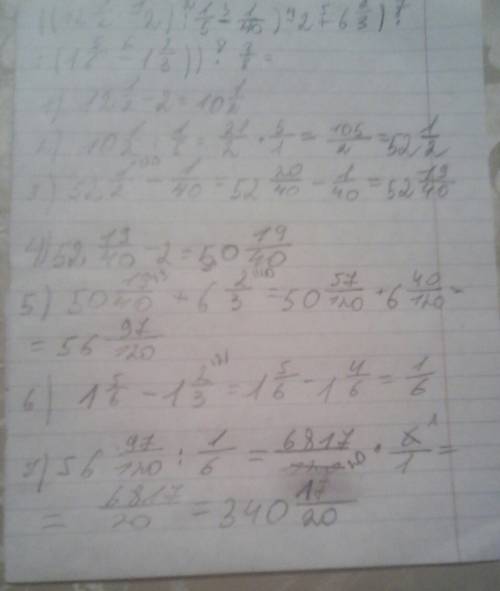 : (1 5/6 - 1 2/3)) : 
1) 12 1/2 - 2 = 10 1/2
2) 10 1/2 : 1/5 = 21/2 · 5/1 = 105/2 = 52 1/2
3) 52 1/2 - 1/40 = 52 20/40 - 1/40 = 52 19/40
4) 52 19/40 - 2 = 50 19/40
5) 50 19/40 + 6 2/3 = 50 57/120 + 6 40/120 =
= 56 97/120
6) 1 5/6 - 1 2/3 = 1 5/6 - 1 4/6 = 1/6
7) 56 97/120 : 1/6 = 6817/120 · 6/1 =
= 6817/20 = 340 17/20